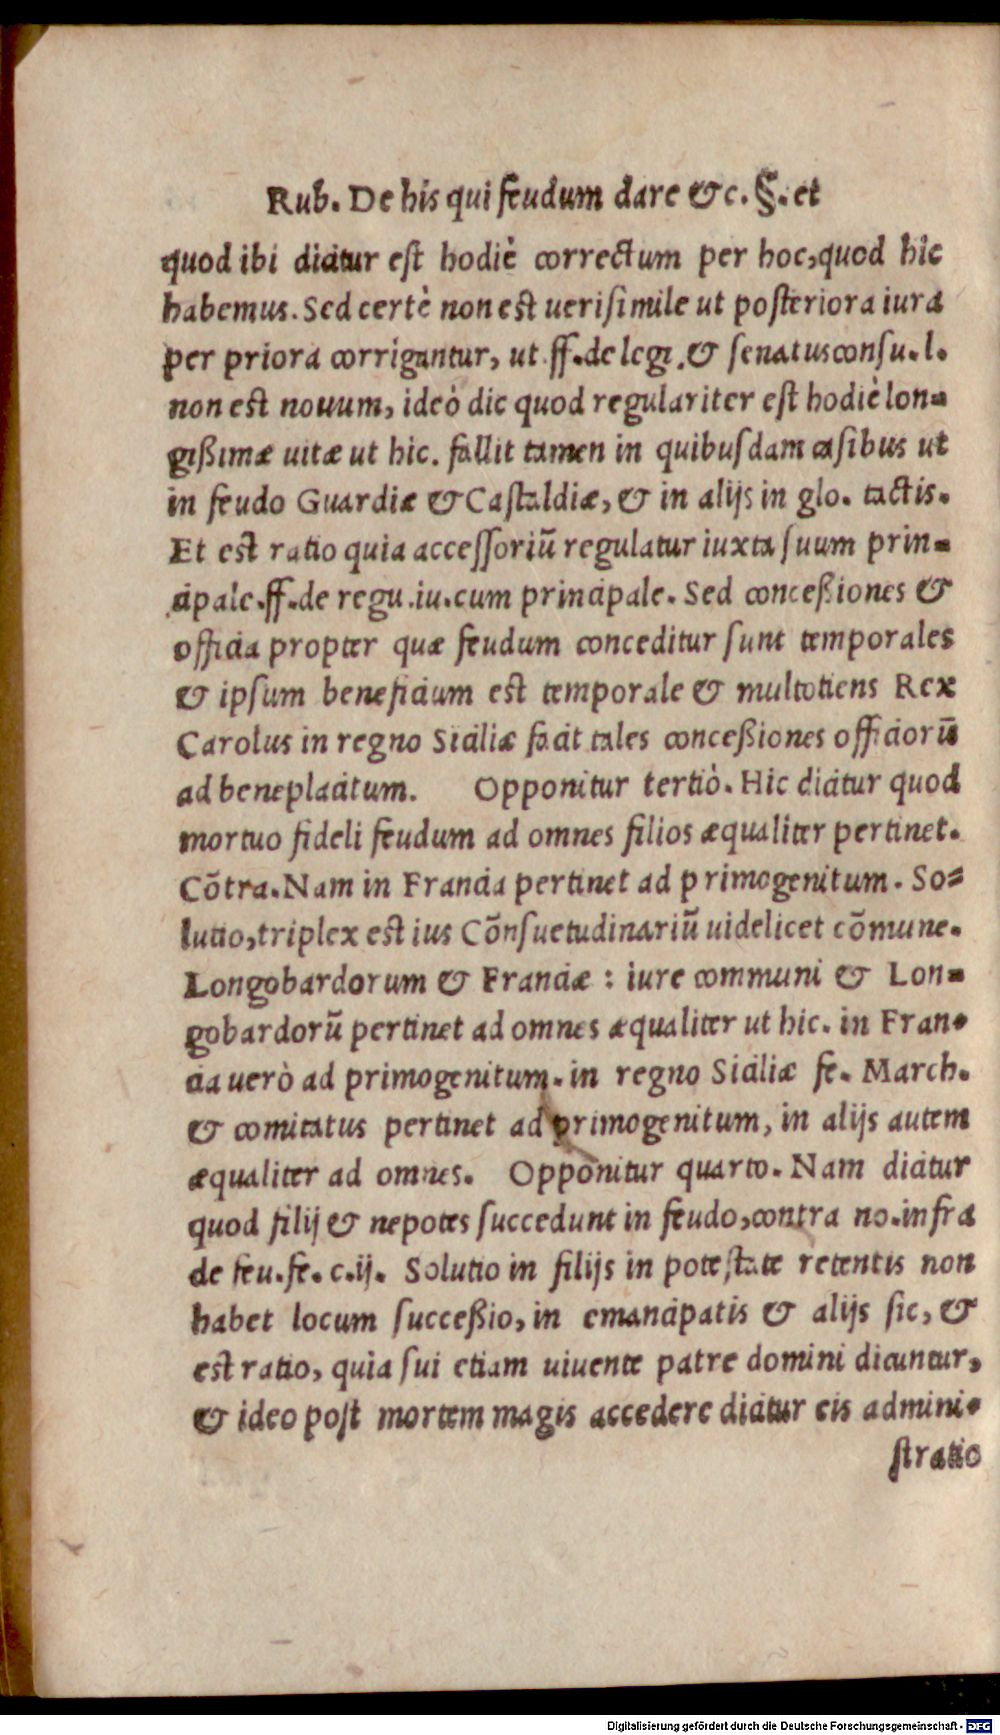 Rub. De his qui feudum dare &c. §. et
quod ibi dicitur est hodiè correctum per hoc, quod hîc
habemus. Sed certè non est uerisimile ut posteriora iura
per priora corrigantur, ut ff. de legi. & senatusconsu. l.
non est nouum, ideò dic quod regulariter est hodiè lon-
gißimæ uitæ ut hic. fallit tamen in quibusdam casibus ut
in feudo Guardiæ & Castaldiæ, & in alijs in glo. tactis.
Et est ratio quia accessoriũ regulatur iuxta suum prin-
cipale. ff. de regu. iu. cum principale. Sed conceßiones &
officia propter quæ feudum conceditur sunt temporales
& ipsum beneficium est temporale & multotiens Rex
Carolus in regno Siciliæ facit tales conceßiones officiorũ
ad beneplacitum. Opponitur tertiò. Hic dicitur quod
mortuo fideli feudum ad omnes filios æqualiter pertinet.
Cõtra. Nam in Francia pertinet ad primogenitum. So-
lutio, triplex est ius Cõnsuetudinariũ uidelicet cõmune.
Longobardorum & Franciæ : iure communi & Lon-
gobardorũ pertinet ad omnes æqualiter ut hic. in Fran-
cia uerò ad primogenitum. in regno Siciliæ fe. March.
& comitatus pertinet ad primogenitum, in alijs autem
æqualiter ad omnes. Opponitur quarto. Nam dicitur
quod filij & nepotes succedunt in feudo, contra no. infra
de feu. fe. c. ij. Solutio in filijs in potestate retentis non
habet locum succeßio, in emancipatis & alijs sic, &
est ratio, quia sui etiam uiuente patre domini dicuntur,
& ideo post mortem magis accedere dicitur eis admini-
stratio
Digitalisierung gefördert durch die Deutsche Forschungsgemeinschaft - DFG